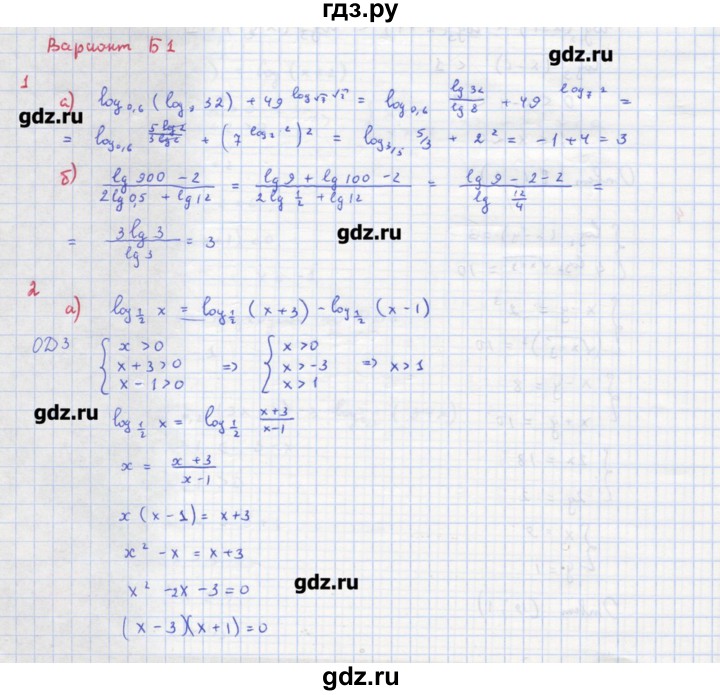 гдз.ру
Вариант Б1
gdz.ru
1
а) log₀,₆ (log₈ 32) + 49^(log√7 √2) = log₀,₆ lg 32/lg 8 + 49^(log₇ 2) =
gdz.ru
= log₀,₆ 5 lg 2/3 lg 2 + (7^(log₇ 2))² = log₃/₅ 5/3 + 2² = -1 + 4 = 3
б) (lg 900 - 2)/(2 lg 0,5 + lg 12) = (lg 9 + lg 100 - 2)/(2 lg 1/2 + lg 12) = (lg 9 - 2 - 2)/(lg 12/4) =
gdz.ru
= 3 lg 3/lg 3 = 3
2
а) log_(1/2) x = log_(1/2) (x+3) - log_(1/2) (x-1)
ОДЗ { x > 0 ; x + 3 > 0 ; x - 1 > 0 => { x > 0 ; x > -3 ; x > 1 => x > 1
gdz.ru
log_(1/2) x = log_(1/2) (x+3)/(x-1)
x = (x+3)/(x-1)
x (x-1) = x+3
x² - x = x+3
x² - 2x - 3 = 0
gdz.ru
(x-3)(x+1) = 0
gdz.ru